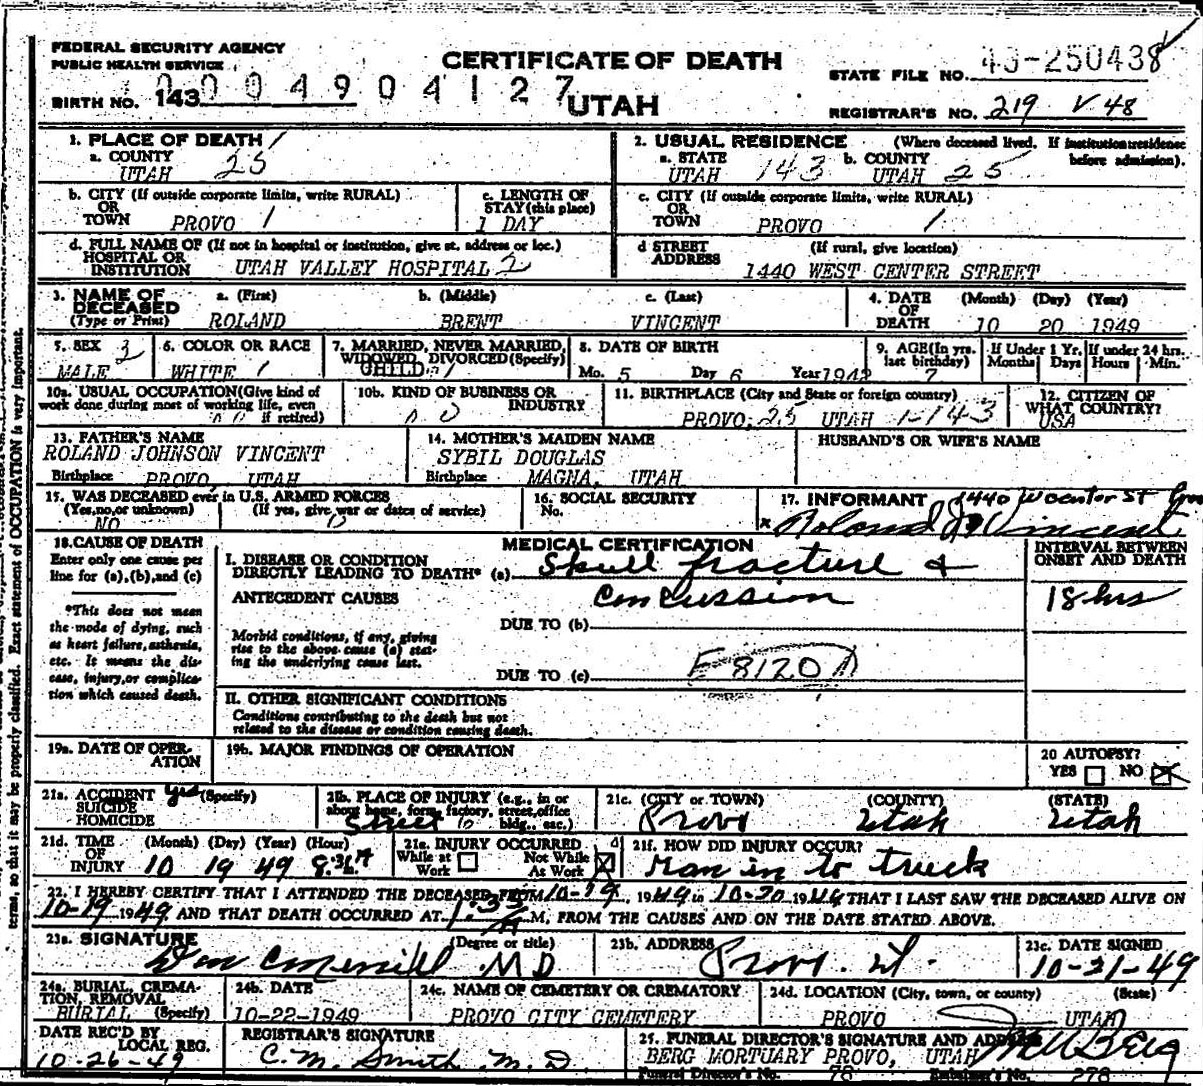 FEDERAL SECURITY AGENCY
PUBLIC HEALTH SERVICE
CERTIFICATE OF DEATH
UTAH
STATE FILE NO. 43-250438
BIRTH NO. 143 0004904127
REGISTRAR'S NO. 219 V 48
1. PLACE OF DEATH
a. COUNTY
UTAH 25
2. USUAL RESIDENCE (Where deceased lived. If institution: residence before admission).
a. STATE b. COUNTY
UTAH 143 UTAH 25
b. CITY (If outside corporate limits, write RURAL)
OR
TOWN PROVO 1
c. LENGTH OF
STAY (this place)
1 DAY
c. CITY (If outside corporate limits, write RURAL)
OR
TOWN PROVO 1
d. FULL NAME OF (If not in hospital or institution, give st. address or loc.)
HOSPITAL OR
INSTITUTION UTAH VALLEY HOSPITAL 2
d STREET (If rural, give location)
ADDRESS 1440 WEST CENTER STREET
3. NAME OF DECEASED
(Type or Print)
a. (First) b. (Middle) c. (Last)
ROLAND BRENT VINCENT
4. DATE OF DEATH (Month) (Day) (Year)
10 20 1949
5. SEX
MALE
6. COLOR OR RACE
WHITE 1
7. MARRIED, NEVER MARRIED,
WIDOWED, DIVORCED (Specify)
CHILD 1
8. DATE OF BIRTH
Mo. 5 Day 6 Year 1942
9. AGE (In yrs. last birthday)
7
If Under 1 Yr.
Months Days
If under 24 hrs.
Hours Min.
10a. USUAL OCCUPATION (Give kind of
work done during most of working life, even
if retired)
10b. KIND OF BUSINESS OR
INDUSTRY
11. BIRTHPLACE (City and State or foreign country)
PROVO, 25 UTAH 1-143
12. CITIZEN OF
WHAT COUNTRY?
USA
13. FATHER'S NAME
ROLAND JOHNSON VINCENT
Birthplace PROVO, UTAH
14. MOTHER'S MAIDEN NAME
SYBIL DOUGLAS
Birthplace MAGNA, UTAH
HUSBAND'S OR WIFE'S NAME
15. WAS DECEASED ever in U.S. ARMED FORCES
(Yes, no, or unknown) (If yes, give war or dates of service)
NO
16. SOCIAL SECURITY
No.
17. INFORMANT 1440 W Center St
x Roland J. Vincent
18. CAUSE OF DEATH
Enter only one cause per
line for (a), (b), and (c)
*This does not mean
the mode of dying, such
as heart failure, asthenia,
etc. It means the dis-
ease, injury, or complica-
tion which caused death.
MEDICAL CERTIFICATION
I. DISEASE OR CONDITION
DIRECTLY LEADING TO DEATH* (a) Skull fracture &
ANTECEDENT CAUSES Concussion
DUE TO (b)
Morbid conditions, if any, giving
rise to the above cause (a) stat-
ing the underlying cause last.
DUE TO (c) E 8120 A
II. OTHER SIGNIFICANT CONDITIONS
Conditions contributing to the death but not
related to the disease or condition causing death.
INTERVAL BETWEEN
ONSET AND DEATH
18 hrs
19a. DATE OF OPER-
ATION
19b. MAJOR FINDINGS OF OPERATION
20 AUTOPSY?
YES NO
21a. ACCIDENT yes (Specify)
SUICIDE
HOMICIDE
21b. PLACE OF INJURY (e.g., in or
about home, farm, factory, street, office
bldg., etc.)
Street
21c. (CITY or TOWN) (COUNTY) (STATE)
Provo Utah Utah
21d. TIME OF INJURY (Month) (Day) (Year) (Hour)
10 19 49
21e. INJURY OCCURRED
While at Work
Not While At Work
21f. HOW DID INJURY OCCUR?
Ran in to truck
22. I HEREBY CERTIFY THAT I ATTENDED THE DECEASED FROM 10-19, 1949 to 10-20 1949 THAT I LAST SAW THE DECEASED ALIVE ON
10-19 1949 AND THAT DEATH OCCURRED AT 1:35 A M, FROM THE CAUSES AND ON THE DATE STATED ABOVE.
23a. SIGNATURE (Degree or title)
Don C Merrill M D
23b. ADDRESS
Provo. Ut.
23c. DATE SIGNED
10-21-49
24a. BURIAL, CREMA-
TION, REMOVAL
BURIAL (Specify)
24b. DATE
10-22-1949
24c. NAME OF CEMETERY OR CREMATORY
PROVO CITY CEMETERY
24d. LOCATION (City, town, or county) (State)
PROVO UTAH
DATE REC'D BY
LOCAL REG.
10-26-49
REGISTRAR'S SIGNATURE
C. M. Smith M. D.
25. FUNERAL DIRECTOR'S SIGNATURE AND ADDRESS
BERG MORTUARY PROVO, UTAH
Funeral Director's No. 78 Embalmer's No. 278
terms, so that it may be properly classified. Exact statement of OCCUPATION is very important.